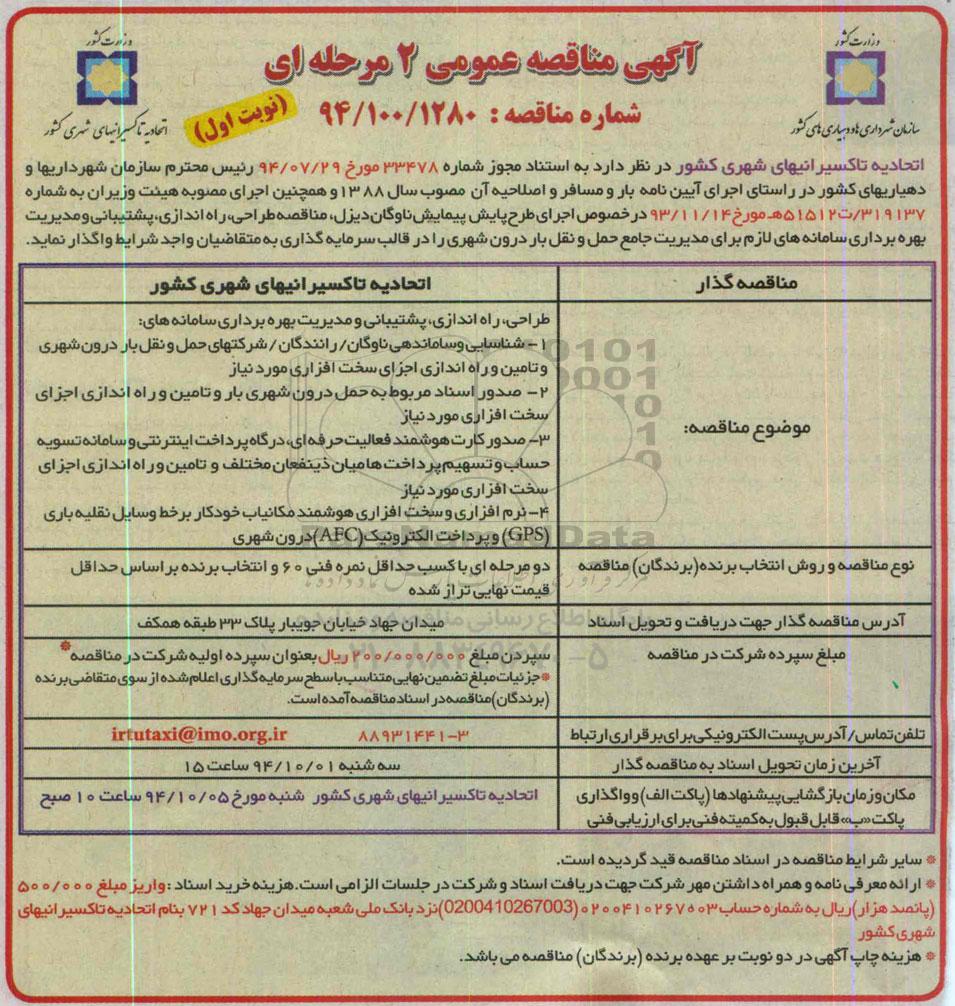 وزارت کشور
سازمان شهرداری ها و دهیاری های کشور
وزارت کشور
اتحادیه تاکسیرانیهای شهری کشور
آگهی مناقصه عمومی ۲ مرحله ای
شماره مناقصه : ۹۴/۱۰۰/۱۲۸۰
(نوبت اول)
اتحادیه تاکسیرانیهای شهری کشور در نظر دارد به استناد مجوز شماره ۳۳۴۷۸ مورخ ۹۴/۰۷/۲۹ رئیس محترم سازمان شهرداریها و
دهیاریهای کشور در راستای اجرای آیین نامه بار و مسافر و اصلاحیه آن مصوب سال ۱۳۸۸ و همچنین اجرای مصوبه هیئت وزیران به شماره
۳۱۹۱۳۷/ت۵۱۵۱۲هـ مورخ ۹۳/۱۱/۱۴ درخصوص اجرای طرح پایش پیمایش ناوگان دیزل، مناقصه طراحی، راه اندازی، پشتیبانی و مدیریت
بهره برداری سامانه های لازم برای مدیریت جامع حمل و نقل بار درون شهری را در قالب سرمایه گذاری به متقاضیان واجد شرایط واگذار نماید.
مناقصه گذار
اتحادیه تاکسیرانیهای شهری کشور
موضوع مناقصه:
طراحی، راه اندازی، پشتیبانی و مدیریت بهره برداری سامانه های:
۱- شناسایی و ساماندهی ناوگان/ رانندگان / شرکتهای حمل و نقل بار درون شهری
و تامین و راه اندازی اجزای سخت افزاری مورد نیاز
۲- صدور اسناد مربوط به حمل درون شهری بار و تامین و راه اندازی اجزای
سخت افزاری مورد نیاز
۳- صدور کارت هوشمند فعالیت حرفه ای، درگاه پرداخت اینترنتی و سامانه تسویه
حساب و تسهیم پرداخت ها میان ذینفعان مختلف و تامین و راه اندازی اجزای
سخت افزاری مورد نیاز
۴- نرم افزاری و سخت افزاری هوشمند مکانیاب خودکار بر خط وسایل نقلیه باری
(GPS) و پرداخت الکترونیک (AFC) درون شهری
نوع مناقصه و روش انتخاب برنده (برندگان) مناقصه
دو مرحله ای با کسب حداقل نمره فنی ۶۰ و انتخاب برنده بر اساس حداقل
قیمت نهایی تراز شده
آدرس مناقصه گذار جهت دریافت و تحویل اسناد
میدان جهاد خیابان جویبار پلاک ۳۳ طبقه همکف
مبلغ سپرده شرکت در مناقصه
سپردن مبلغ ۲۰۰/۰۰۰/۰۰۰ ریال بعنوان سپرده اولیه شرکت در مناقصه *
* جزئیات مبلغ تضمین نهایی متناسب با سطح سرمایه گذاری اعلام شده از سوی متقاضی برنده
(برندگان) مناقصه در اسناد مناقصه آمده است.
تلفن تماس/ آدرس پست الکترونیکی برای برقراری ارتباط
۸۸۹۳۱۴۴۱-۳ irtutaxi@imo.org.ir
آخرین زمان تحویل اسناد به مناقصه گذار
سه شنبه ۹۴/۱۰/۰۱ ساعت ۱۵
مکان و زمان بازگشایی پیشنهادها (پاکت الف) و واگذاری
پاکت «ب» قابل قبول به کمیته فنی برای ارزیابی فنی
اتحادیه تاکسیرانیهای شهری کشور شنبه مورخ ۹۴/۱۰/۰۵ ساعت ۱۰ صبح
* سایر شرایط مناقصه در اسناد مناقصه قید گردیده است.
* ارائه معرفی نامه و همراه داشتن مهر شرکت جهت دریافت اسناد و شرکت در جلسات الزامی است. هزینه خرید اسناد : واریز مبلغ ۵۰۰/۰۰۰
(پانصد هزار) ریال به شماره حساب ۰۲۰۰۴۱۰۲۶۷۰۰۳ (0200410267003) نزد بانک ملی شعبه میدان جهاد کد ۷۲۱ بنام اتحادیه تاکسیرانیهای
شهری کشور
* هزینه چاپ آگهی در دو نوبت بر عهده برنده (برندگان) مناقصه می باشد.